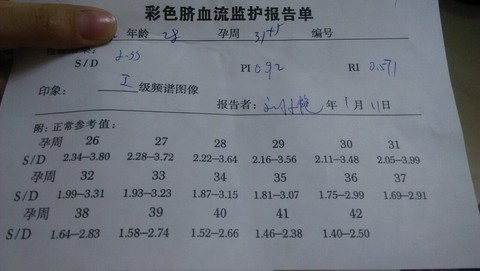 彩色脐血流监护报告单
年龄 28 孕周 31+5 编号
S/D 2.33 PI 0.92 RI 0.571
印象: I 级频谱图像
报告者: 年 1 月 11 日
附: 正常参考值:
孕周 26 27 28 29 30 31
S/D 2.34-3.80 2.28-3.72 2.22-3.64 2.16-3.56 2.11-3.48 2.05-3.99
孕周 32 33 34 35 36 37
S/D 1.99-3.31 1.93-3.23 1.87-3.15 1.81-3.07 1.75-2.99 1.69-2.91
孕周 38 39 40 41 42
S/D 1.64-2.83 1.58-2.74 1.52-2.66 1.46-2.38 1.40-2.50